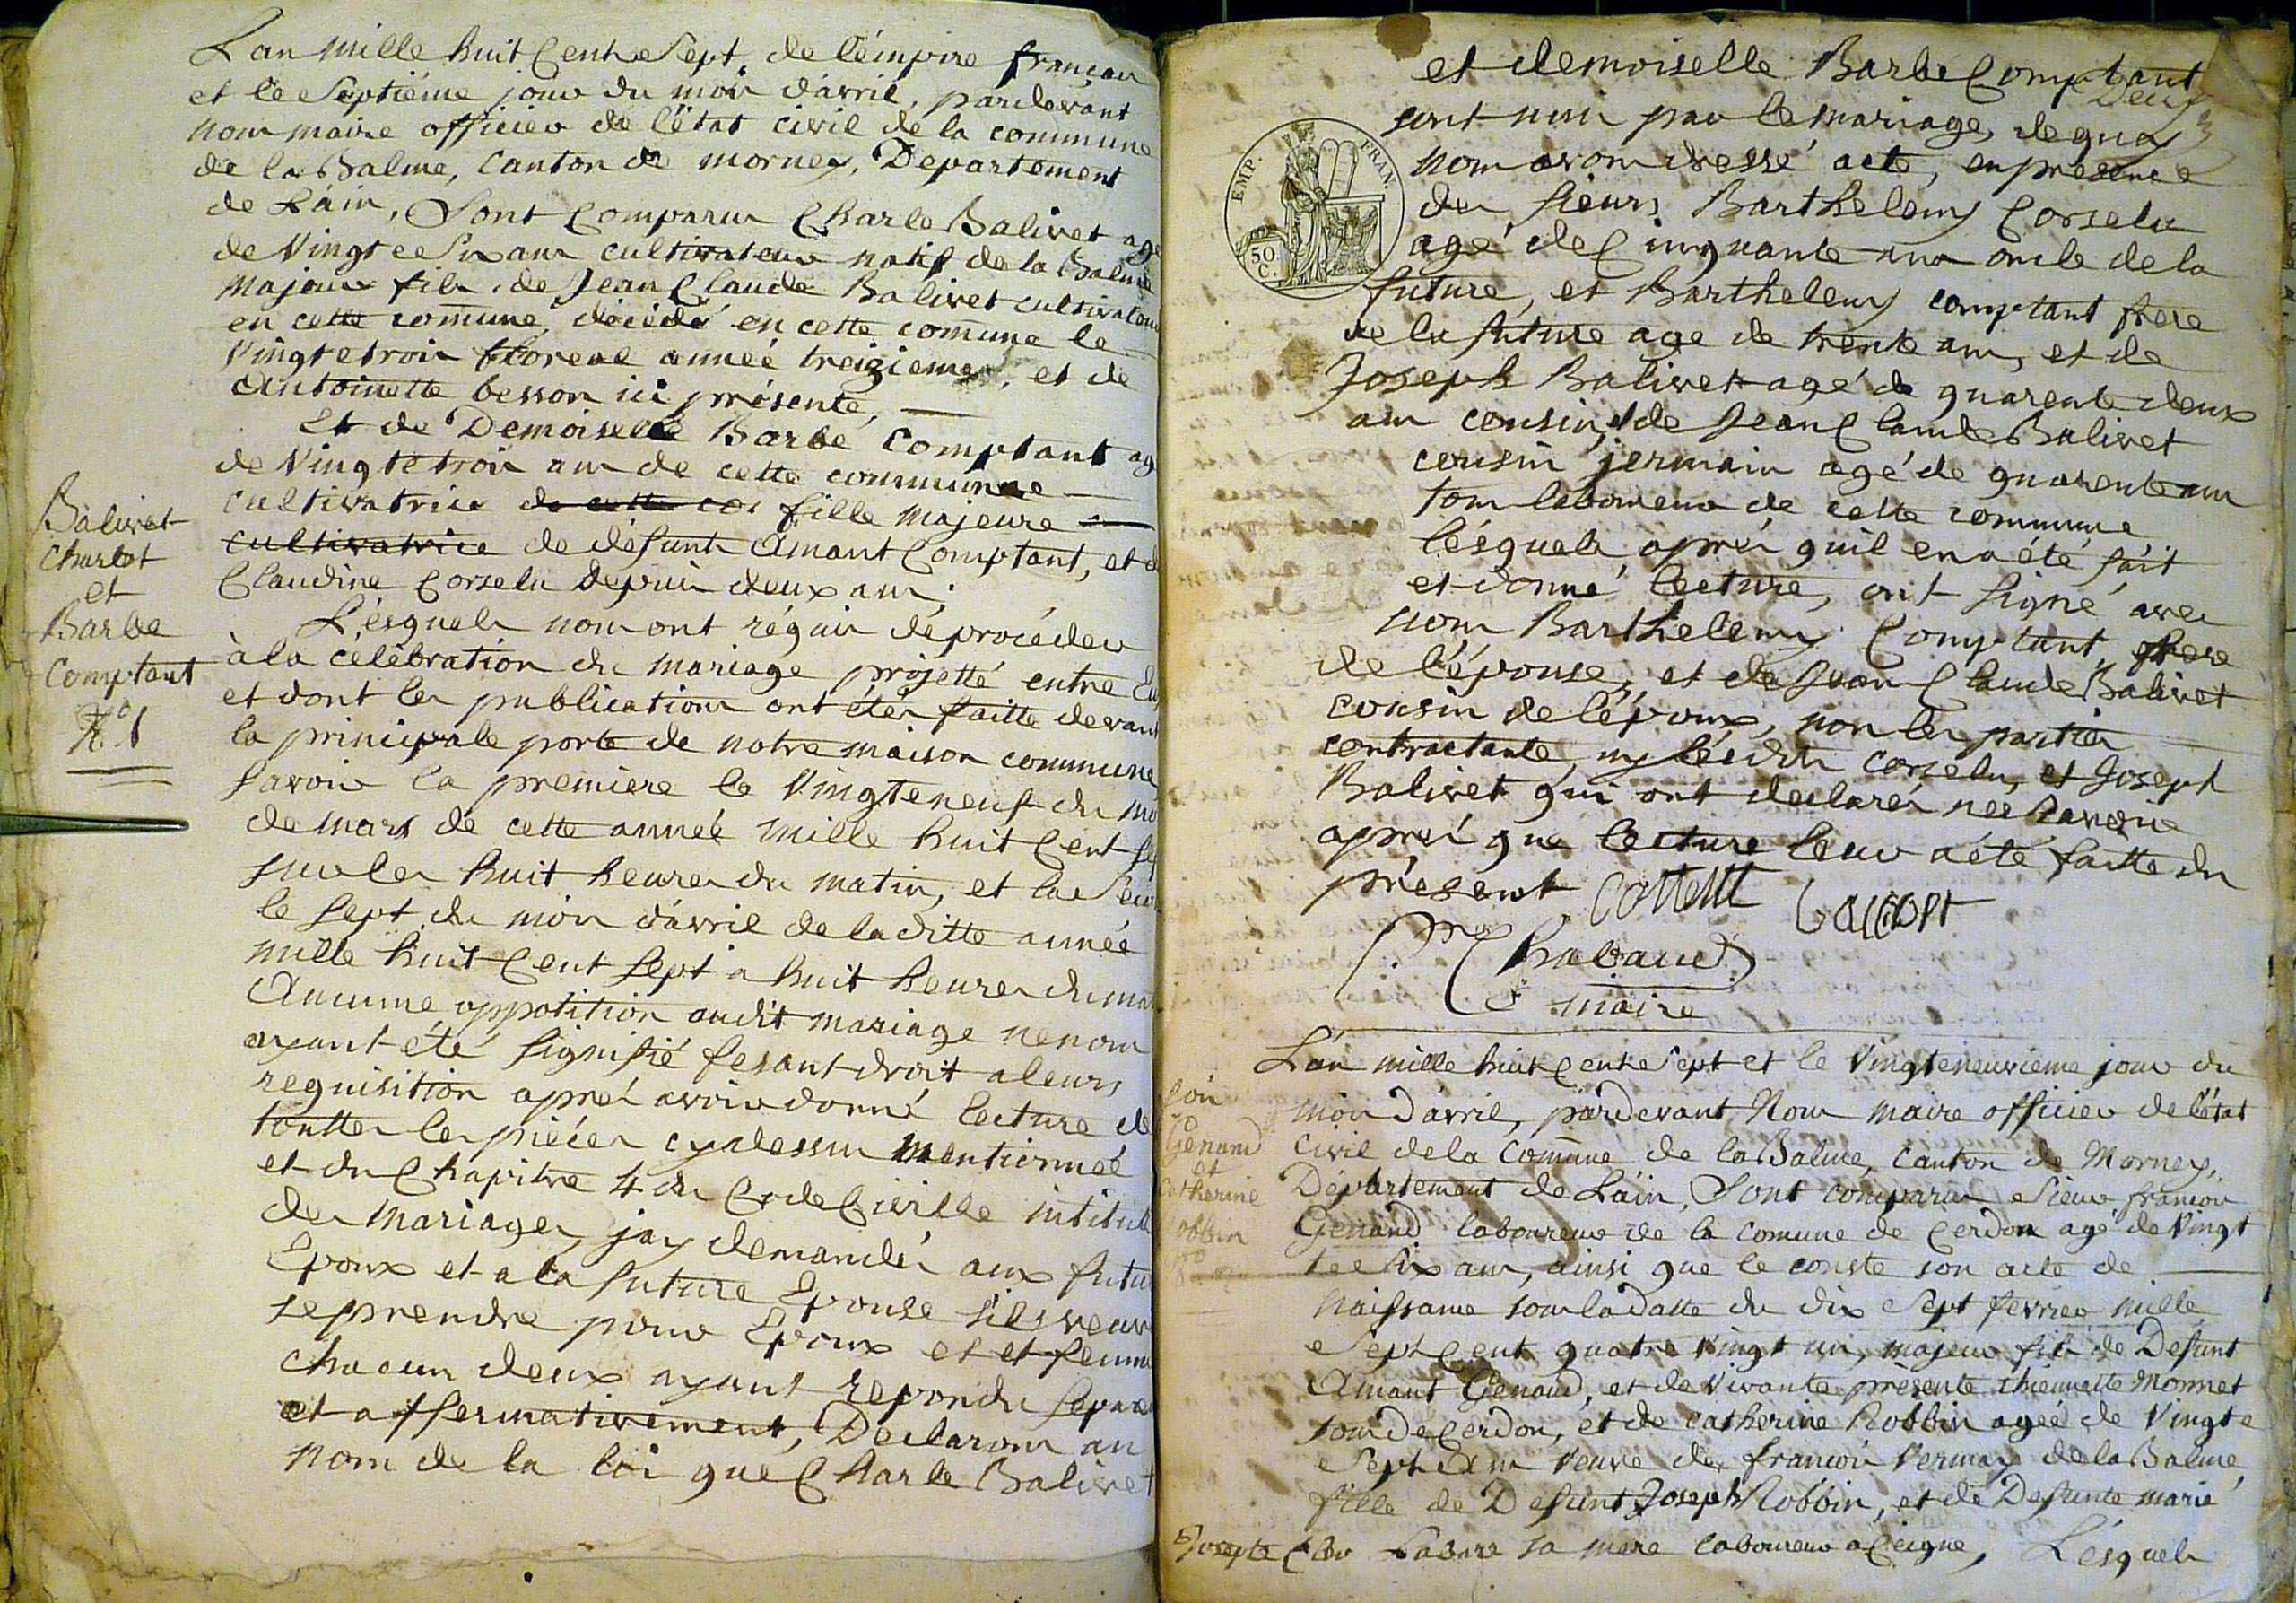 L'an mille huit Cent e Sept, de l'émpire francau
et le Septiéme jour du moi d'avril, pardevant
nour maire officier de l'état civil de la commune
de la Balme, Canton de mornay, Departement
de L'ain, Sont Comparur Charle Balivet agé
de Vingt ee Six anr cultivateur natif de la Balme
majeur filr de Jean Claude Balivet cultivateur
en cette comune, décédé en cette comune le
Vingt e troir floreal année treizieme, et de
Antoinette besson ici présente,
Et de Demoiselle Barbé Comptant ag
de Vingt e troir anr de cette commune
Cultivatrice de cette co. fille majeure
cultivatrice de défunt Amant Comptant, et d
Claudine Corselu depuir deux anr,
Lésquelr nour ont réquir de procéder
à la celébration du mariage projetté entre Eux
et dont ler publicationr ont étér faitte devant
la principale porte de notre maison commune
Savoir la premiere le Vingt e neuf du mo
de mars de cette année mille huit Cent sep
sur ler huit heurer du matin, et la Seco
le sept du moir d'avril de laditte année
mille huit Cent Sept a huit heurer du mat
Aucune oppotition audit mariage ne nour
ayant été signifié fesant droit a leurs
requisition apréi avoir donné lecture de
touttes ler piécer cy dessur mentionnée
et du Chapitre 4 du Code Civille intitulé
der mariager, jay demandér aux futur
Epoux et a la future Epouse s'ils veuv
se prendre pour Epoux et et femme
Chacun deux ayant repondu separe
et affermativement, Declarons au
nom de la loi que Charle Balivet
Balivet
Charlet
et
Barbe
Comptant
N.º 1
et demoiselle Barbe Comptant
Deux
sont unir par le mariage, de quoy
nour avonr dressé acte, en présence
der Sieurs Barthelemy Corselu
agé de Cinquante anr oncle de la
future, et Barthelemy comptant frere
de la future age de trente anr, et de
Joseph Balivet agé de quarente deux
anr cousin, et de Jean Claude Balivet
cousin jermain agé de quarente anr
tour laboureur de cette commune
lésquelr, aprér quil en a été fait
et donné lecture, ont signé avec
nour Barthelemy Comptant frere
de l'épouse, et de Jean Claude Balivet
cousin de l'époux, non ler partier
contractante, ny lésdits Corselu, et Joseph
Balivet qui ont declarér ne savoir
aprér que lecture leur a été faitte du
présent
Chabaud
maire
EMP. FRAN.
50
C.
L'an mille huit Cent e Sept et le Vingt e neuvieme jour du
moir d'avril, pardevant Nour maire officier de l'état
Civil de la Comune de la Balme, Canton de Mornay,
Département de L'ain, Sont comparur e Sieur francoir
Genaud laboureur de la comune de Cerdon agé de Vingt
t ee Six anr, ainsi que le conste son acte de
naissance sour la datte du dix Sept fevrier mille
e Sept Cent quatre Vingt un, majeur filr de Defunt
Amant Genaud, et de Vivante présente thiennette Monnet
tour de Cerdon, et de Catherine Robbin agée de Vingt e
e Sept anr Veuve de francoir Vermay de la Balme
fille de Defunt Joseph Robbin, et de Defunte marie
Josepte sa mere laboureur a Ceigne, Lésquelr
Genaud
et
Catherine
Robbin